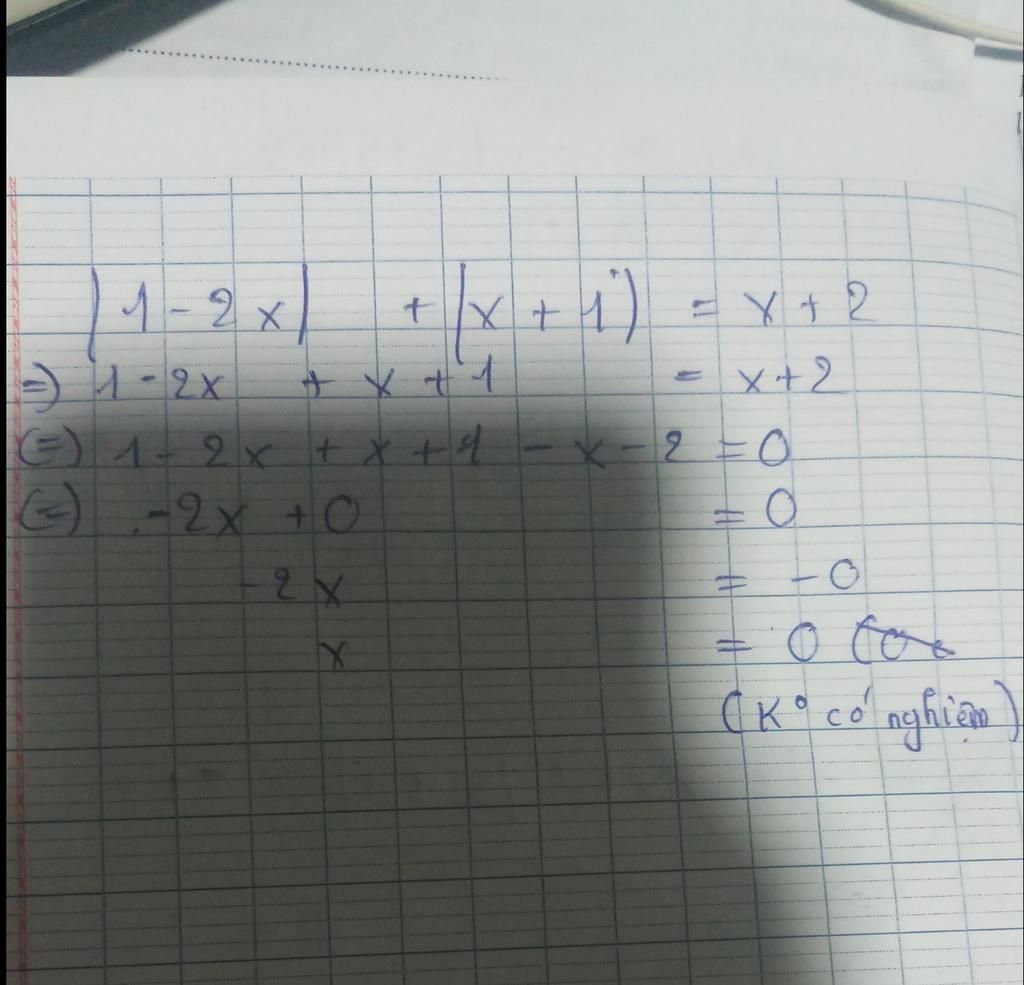 |1 - 2x| + |x + 1) = x + 2
=) 1 - 2x + x + 1 = x + 2
(=) 1 - 2x + x + 1 - x - 2 = 0
(=) - 2x + 0 = 0
- 2x = - 0
x = 0
(K° có nghiệm)